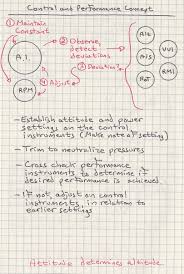 Control and Performance Concept
① Maintain
Constant
② Observe,
detect
deviations
A.I.
③ Deviation?
④ Adjust
RPM
Alt
VVI
RMI
- Establish attitude and power
settings on the control
instruments (Make note of setting)
- Trim to neutralize pressures
- Cross check performance
instruments to determine if
desired performance is achieved
- If not, adjust on control
instruments, in relation to
earlier settings
Attitude determines altitude